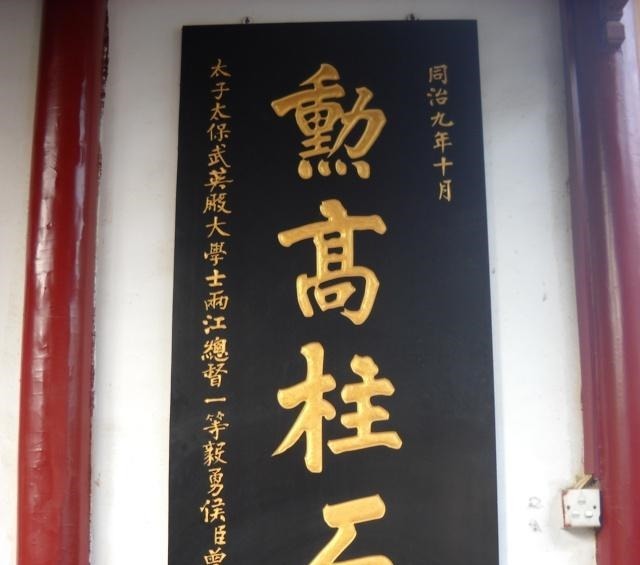 同治九年十月
勳高柱石
太子太保武英殿大學士兩江總督一等毅勇侯臣曾